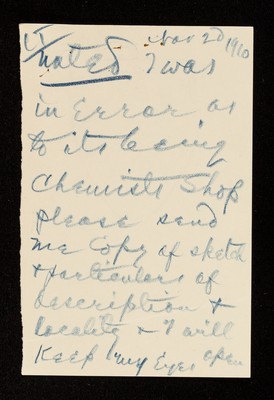 Nov 2d 1910
noted I was
in Error as
to its being
Chemists Shop
please send
me Copy of sketch
& particulars of
description &
locality & I will
Keep my Eyes open